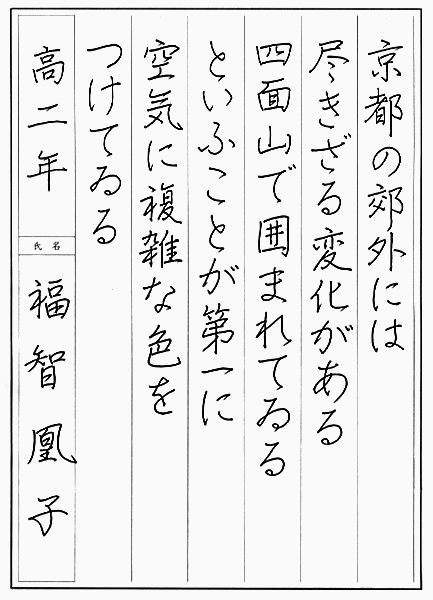 京都の郊外には
尽きざる変化がある
四面山で囲まれてゐる
といふことが第一に
空気に複雑な色を
つけてゐる
高二年
氏名
福智凰子